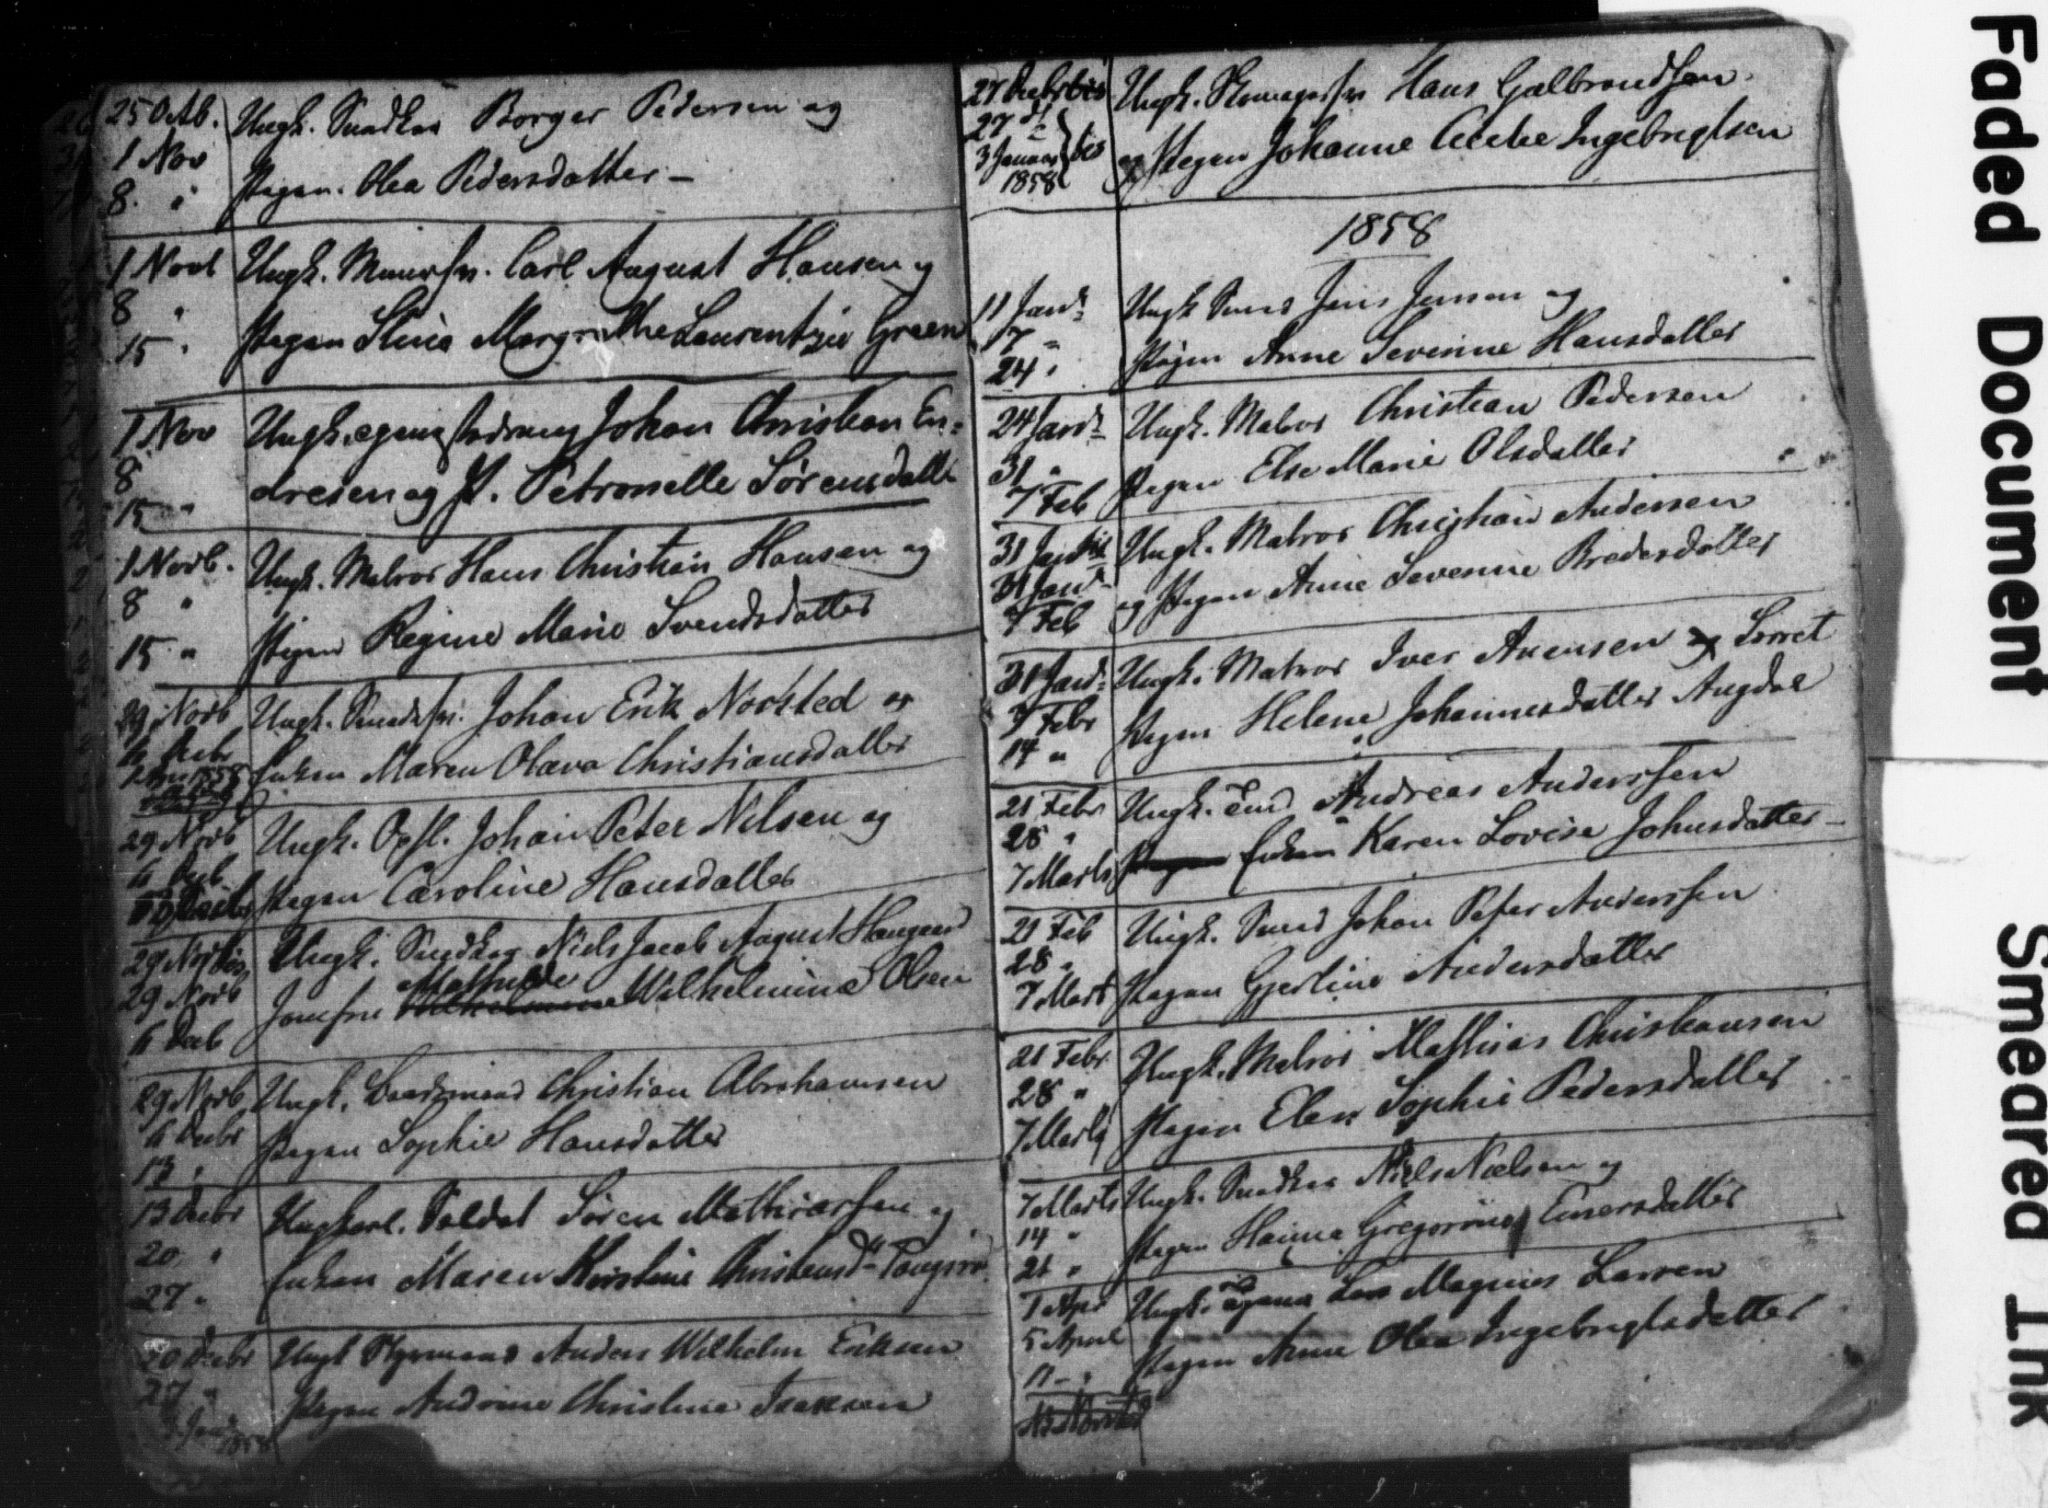 25 Octb. Ungk. Snedker Borger Pedersen og
1 Nov
8. " Pigen. Olea Pedersdatter –
1 Novb Ungk. Murersv. Carl August Hansen og
8 "
15 " Pigen Stine Margrethe Laurentzie Green
1 Nov Ungk. Johan Christian En=
8
15 " dresen og P. Petronelle Sørensdatter
1 Novb. Ungk. Matros Hans Christian Hansen og
8 "
15 " Pigen Regine Marie Svendsdatter
29 Novb Ungk. Smedsv. Johan Erik Norsted og
6 Decbr
1858 Enken Maren Olava Christiansdatter
29 Novb Ungk. Opsl. Johan Peter Nilsen og
6 Decb
Pigen Caroline Hansdatter
29 Novb Ungk. Snedker Niels Jacob August Haugaard
29 Novb Mathilde
6 Decb Jomfru Wilhelmine Olsen
29 Novb Ungk. Baadsmand Christian Abrahamsen
6 Decbr
13 " Pigen Sophie Hansdatter
13 Decbr Ungkarl. Soldat Søren Mathiassen og
20 "
27 " Enken Maren Kirstine Christensd.
20 Decbr Ungk Styrmand Anders Wilhelm Eriksen
27 "
3 Jan 1858 Pigen Andrine Christine Isaksen
27 Decbr Ungk. Skomagersv Hans Gulbrandsen
27
3 Januar og Pigen Johanne Cecilie Ingebrigtsen
1858
1858
11 Jan Ungk Smed Jens Jensen og
17 "
24 " Pigen Anne Severine Hansdatter
24 Jan Ungk. Matros Christian Pedersen
31 "
7 Feb Pigen Else Marie Olsdatter
31 Jan Ungk. Matros Christian Andersen
31 Jan
7 Feb og Pigen Anne Severine Bredesdatter
31 Jan Ungk. Matros Iver Avensen
7 Febr
14 " Pigen Helene Johannesdatter Augdal
21 Febr Ungk. Andreas Anderssen
28 "
7 Marts Enken Karen Lovise Johnsdatter –
21 Feb Ungk. Smed Johan Peter Anderssen
28 "
7 Mart Pigen Gjertine Andersdatter
21 Febr Ungk. Matros Mathias Christiansen
28 "
7 Marts Pigen Elen Sophie Pedersdatter
7 Marts Ungk. Snedker Niels Nielsen og
14 "
21 " Pigen Hanna Gregorine Einersdatter
1 Apr Ungk. Lars Magnus Larsen
5 April
11 – " Pigen Anne Olea Ingebrigtsdatter
Faded Document
Smeared Ink